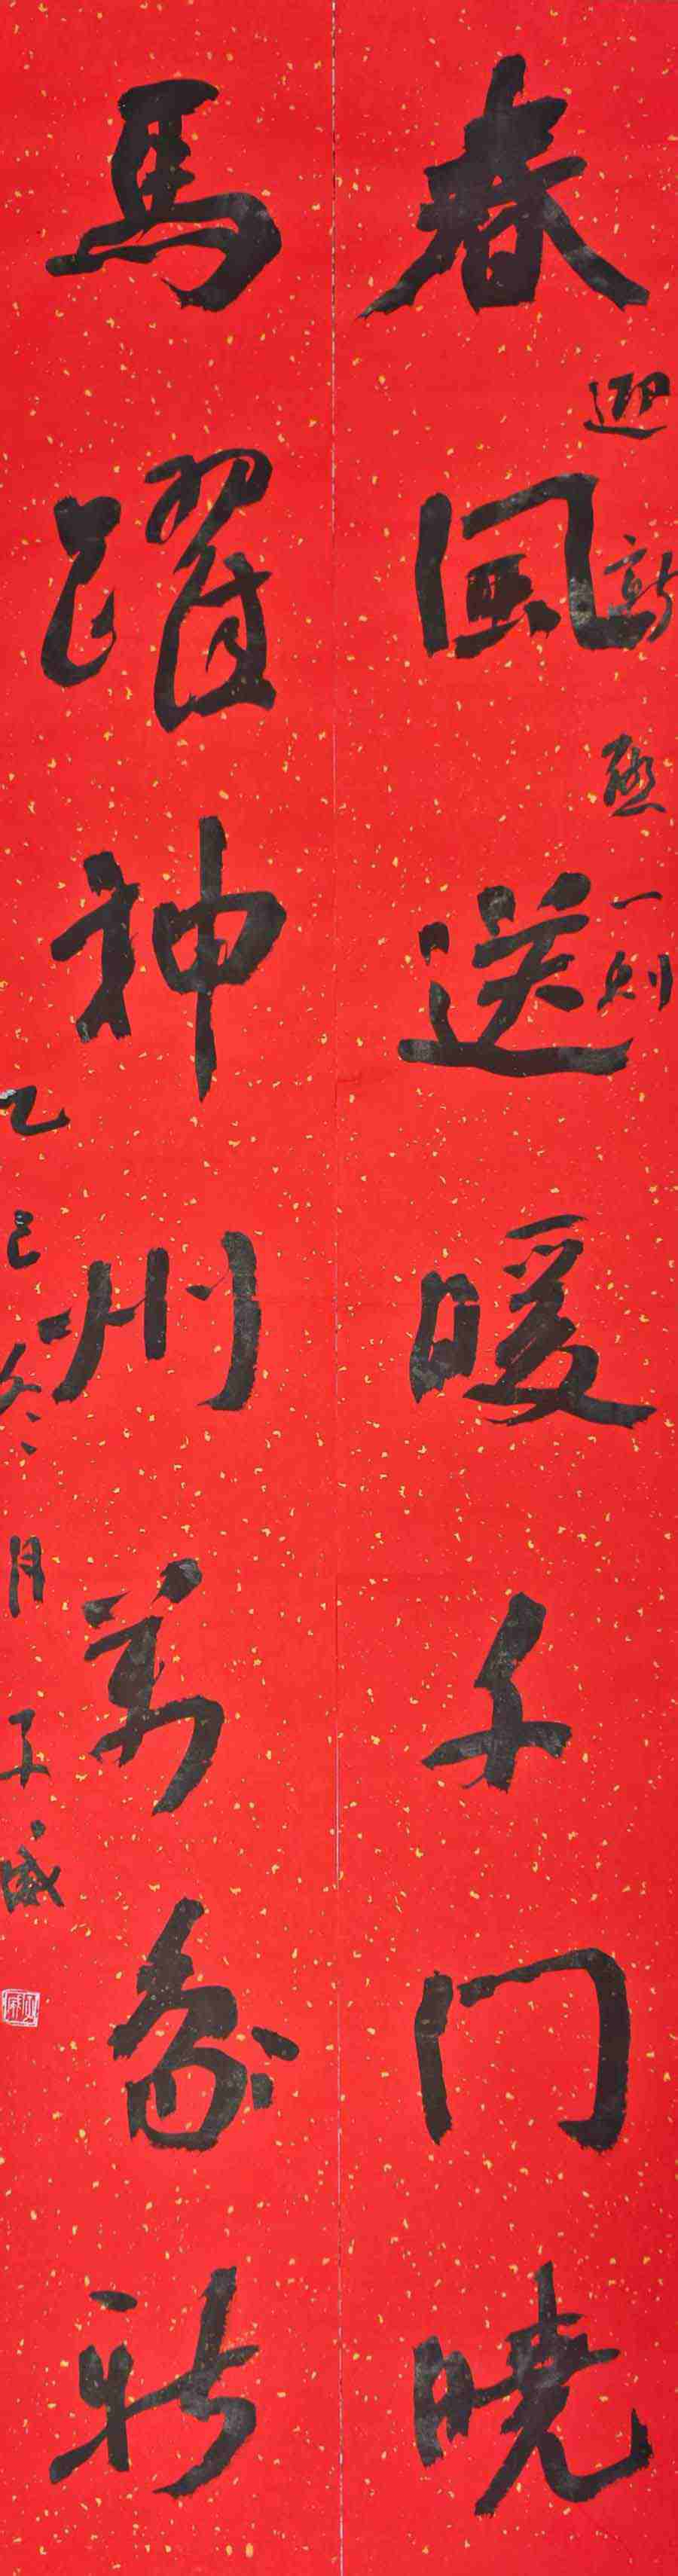 春風送暖千门曉
迎新一则
馬躍神州萬象新
乙巳冬月子威